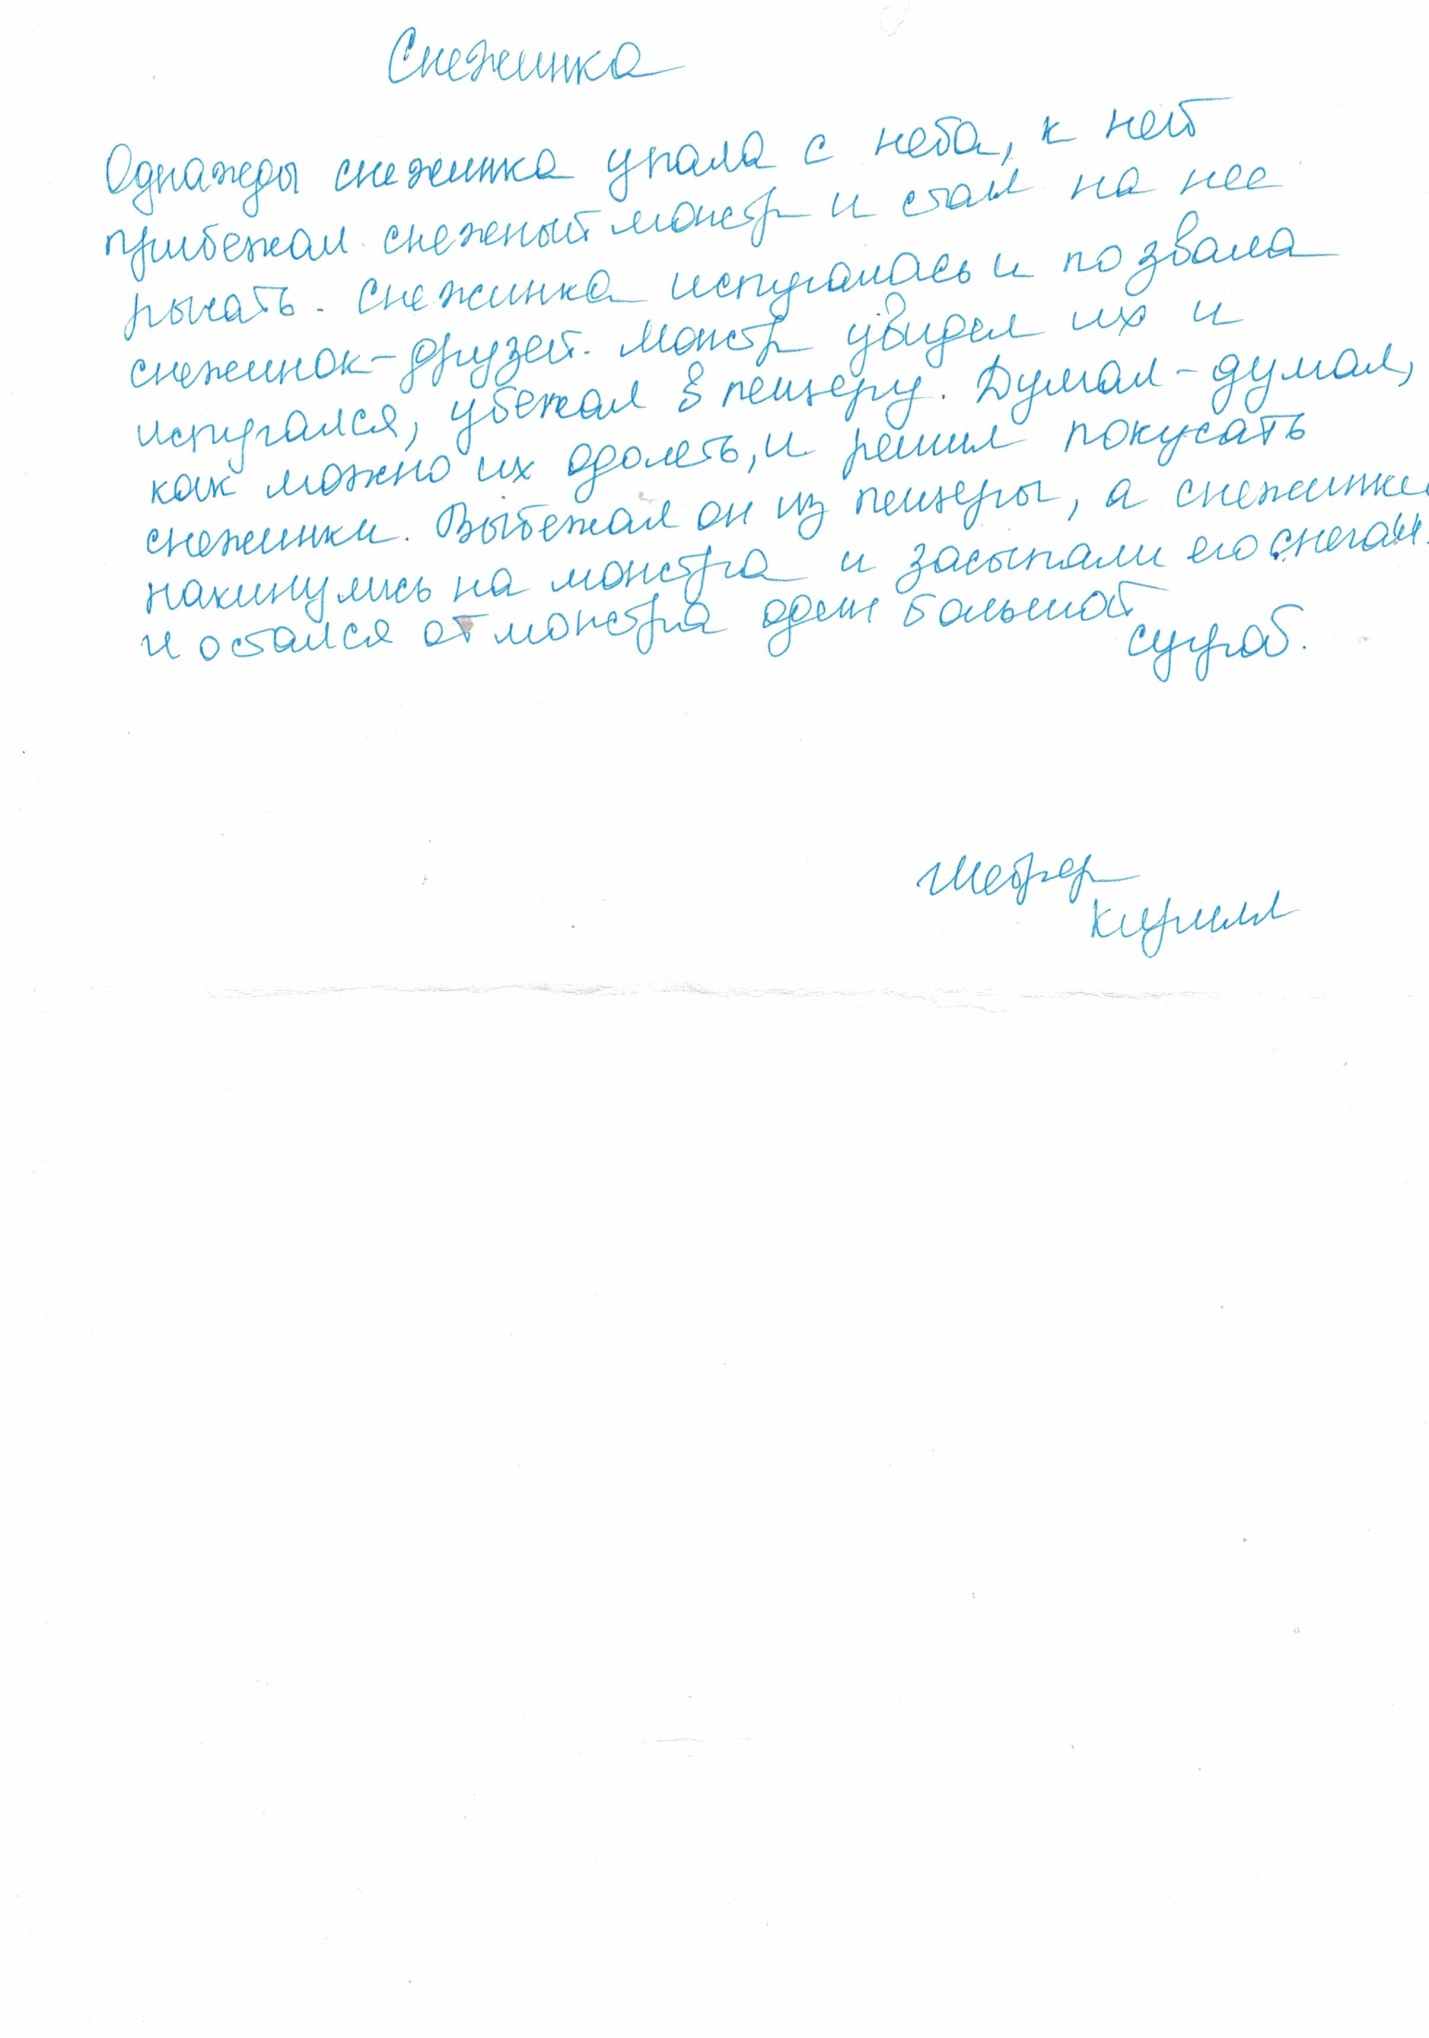 Снежинка
Однажды снежинка упала с неба, к ней
прибежал снежный монстр и стал на нее
рычать. Снежинка испугалась и позвала
снежинок-друзей. Монстр увидел их и
испугался, убежал в пещеру. Думал-думал,
как можно их одолеть, и решил покусать
снежинки. Выбежал он из пещеры, а снежинки
накинулись на монстра и засыпали его снегом.
и остался от монстра один большой
сугроб.
Кирилл